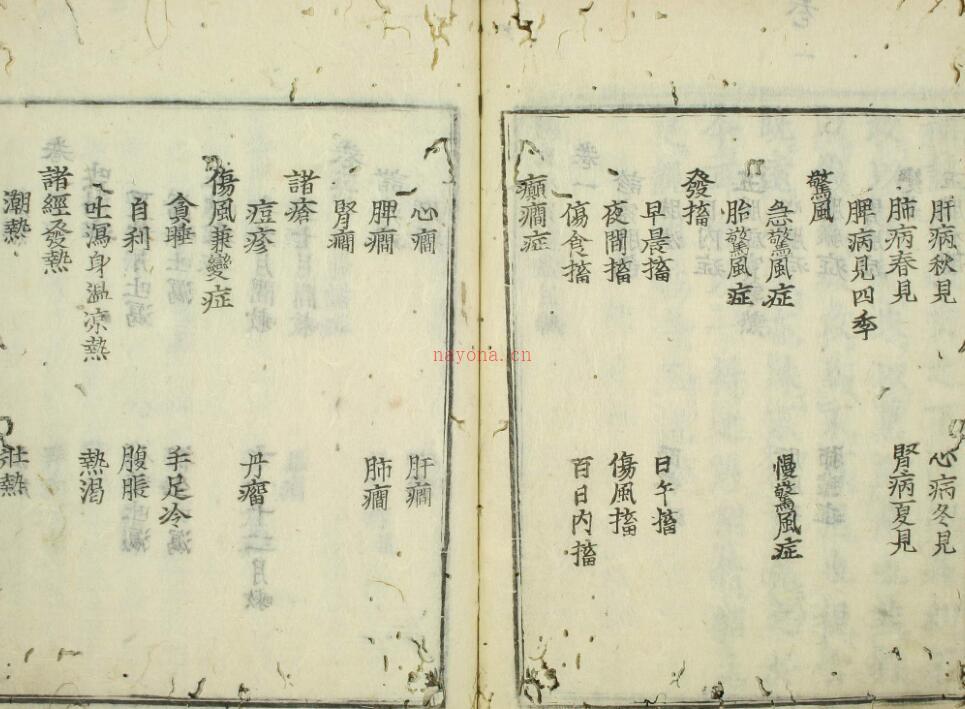 肝病秋見 心病冬見
肺病春見 腎病夏見
脾病見四季
驚風
急驚風症 慢驚風症
胎驚風症
發搐
早晨搐 日午搐
夜間搐 傷風搐
傷食搐 百日內搐
癲癇症
心癇 肝癇
脾癇 肺癇
腎癇
諸瘡
痘疹 丹瘤
傷風兼變症
貪睡 手足冷
自利 腹脹
吐瀉身温凉熱 熱渴
諸經發熱
潮熱 壯熱
nayona.cn